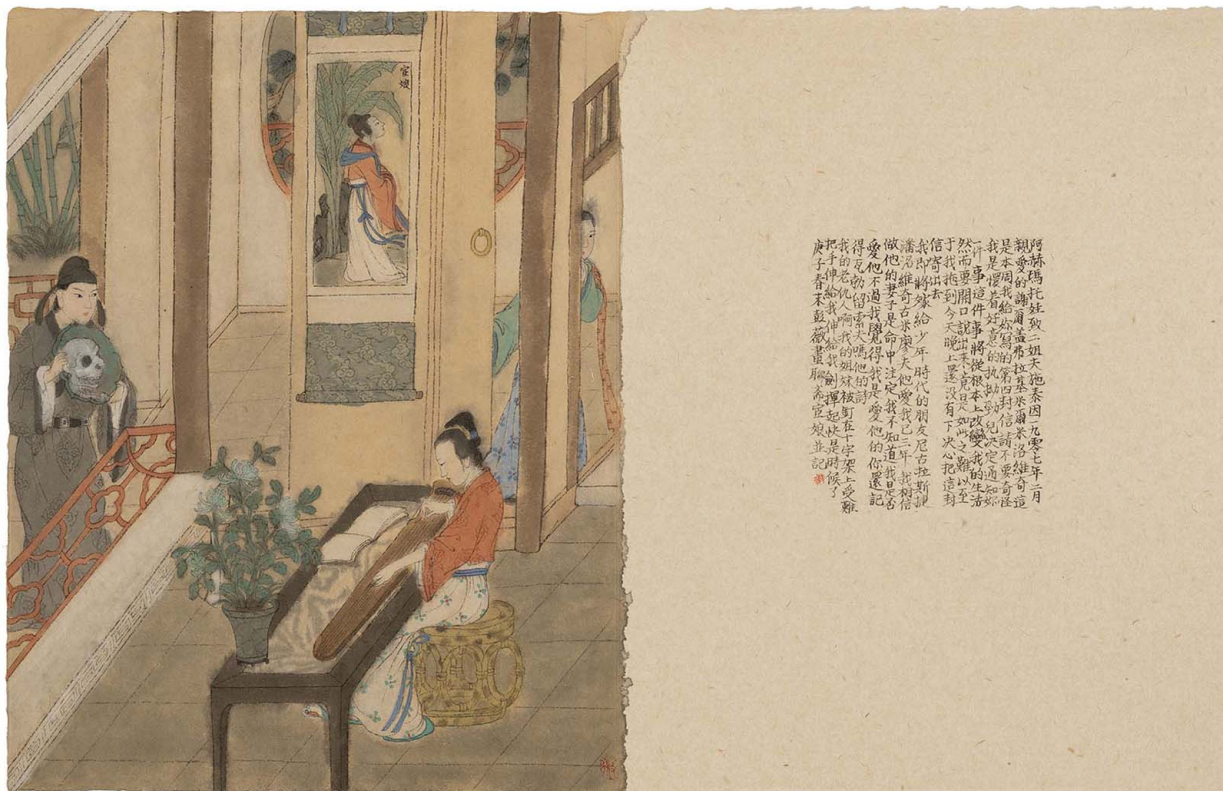 宦娘
阿赫瑪托娃致二姐夫施泰因一九零七年二月
親愛的謝爾盖弗拉基米爾米洛維奇這
是本周我給妳寫的第四封信請不要奇怪
我是懷着好意的执拗勁兒决定通知妳
一件事這件事將從根本上改變我的生活
然而要開口說出來竟是如此之難以至
于我拖到今天晚上還没有下决心把這封
信寄出去
我即將嫁給少年時代的朋友尼古拉斯捷
潘諾維奇古米廖夫他愛我已三年我相信
做他的妻子是命中注定我不知道我是否
愛他不過我覺得我是愛他的你還記
得瓦勃留索夫嗎他的詩
我的老仇人啊我的姐妹被釘在十字架上受難
把手伸給我伸給我劍揮起快是時候了
庚子春末彭薇畫聊斋宦娘並記